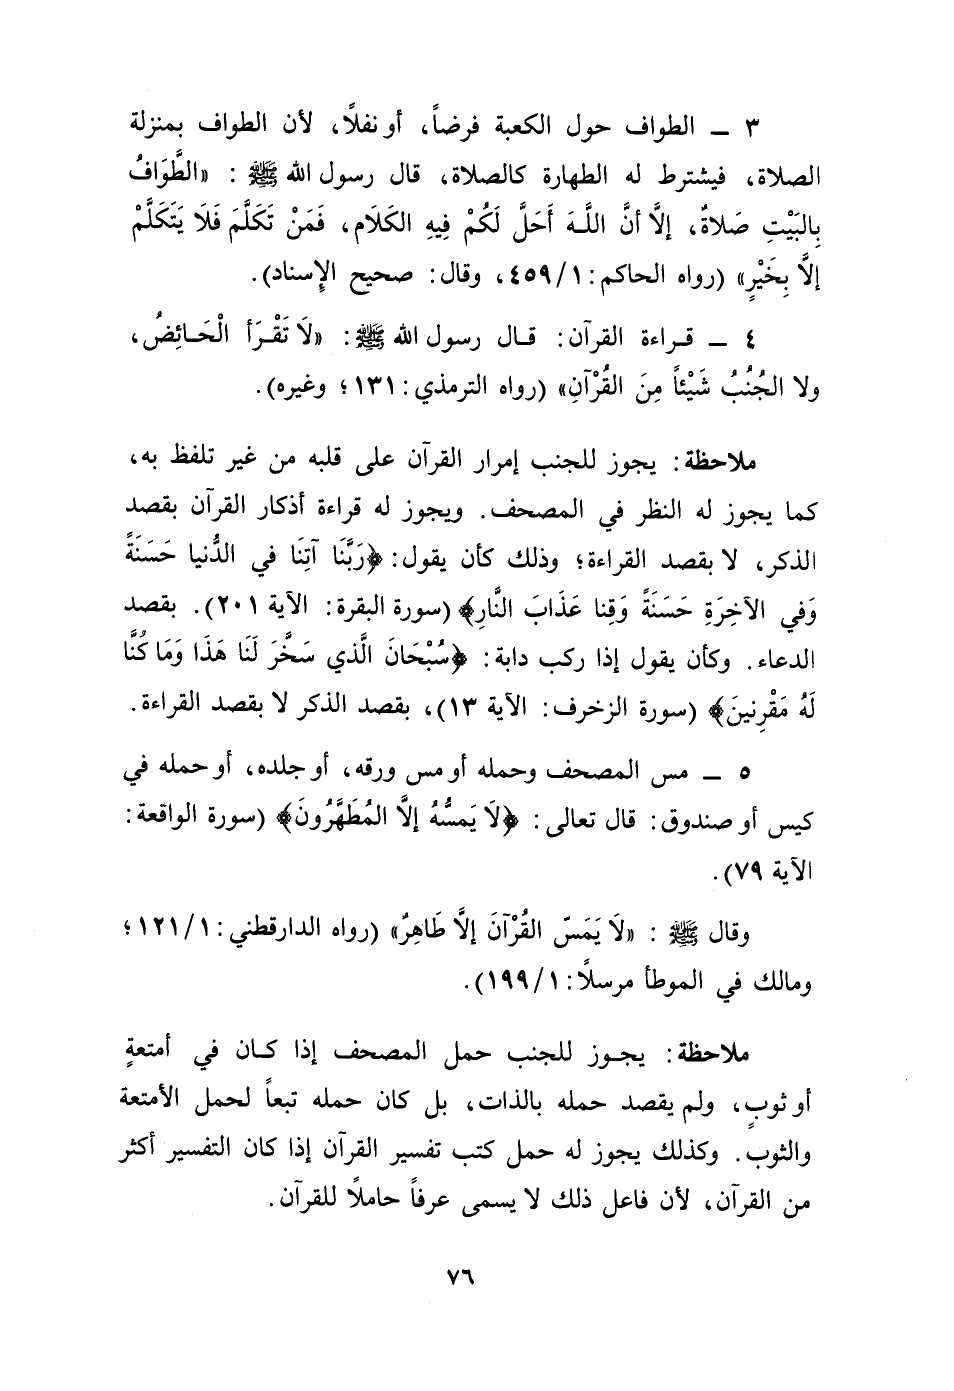 ٣ ــ الطواف حول الكعبة فرضاً، أو نفلًا، لأن الطواف بمنزلة
الصلاة، فيشترط له الطهارة كالصلاة، قال رسول الله ﷺ : «الطَّوَافُ
بِالبَيْتِ صَلاةٌ، إلَّا أنَّ اللَّـهَ أَحَلَّ لَكُمْ فِيهِ الكَلَام، فَمَنْ تَكَلَّمَ فَلَا يَتَكَلَّمْ
إلَّا بِخَيْرٍ» (رواه الحاكم: ٤٥٩/١، وقال: صحيح الإِسناد).
٤ ــ قـراءة القرآن: قـال رسول الله ﷺ: «لَا تَقْـرَأ الْحَـائِضُ،
ولا الجُنُبُ شَيْئاً مِنَ القُرْآنِ» (رواه الترمذي: ١٣١؛ وغيره).
ملاحظة: يجوز للجنب إمرار القرآن على قلبه من غير تلفظ به،
كما يجوز له النظر في المصحف. ويجوز له قراءة أذكار القرآن بقصد
الذكر، لا بقصد القراءة؛ وذلك كأن يقول: ﴿رَبَّنَا آتِنَا في الدُّنيا حَسَنَةً
وَفي الآخِرَةِ حَسَنَةً وَقِنا عَذَابَ النَّارِ﴾ (سورة البقرة: الآية ٢٠١). بقصد
الدعاء. وكأن يقول إذا ركب دابة: ﴿سُبْحَانَ الَّذي سَخَّرَ لَنَا هَذَا وَمَا كُنَّا
لَهُ مَقْرِنينَ﴾ (سورة الزخرف: الآية ١٣)، بقصد الذكر لا بقصد القراءة.
٥ ــ مس المصحف وحمله أو مس ورقه، أو جلده، أو حمله في
كيس أو صندوق: قال تعالى: ﴿لَا يَمسُّهُ إلَّا المُطَهَّرُونَ﴾ (سورة الواقعة:
الآية ٧٩).
وقال ﷺ : «لَا يَمَسّ القُرْآنَ إلَّا طَاهِرٌ» (رواه الدارقطني: ١٢١/١؛
ومالك في الموطأ مرسلًا: ١٩٩/١).
ملاحظة: يجـوز للجنب حمل المصحف إذا كـان في أمتعةٍ
أو ثوبٍ، ولم يقصد حمله بالذات، بل كان حمله تبعاً لحمل الأمتعة
والثوب. وكذلك يجوز له حمل كتب تفسير القرآن إذا كان التفسير أكثر
من القرآن، لأن فاعل ذلك لا يسمى عرفاً حاملًا للقرآن.
٧٦